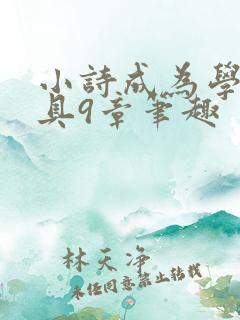 小詩成為學
具9章筆趣
林天净
未任同意禁止转载